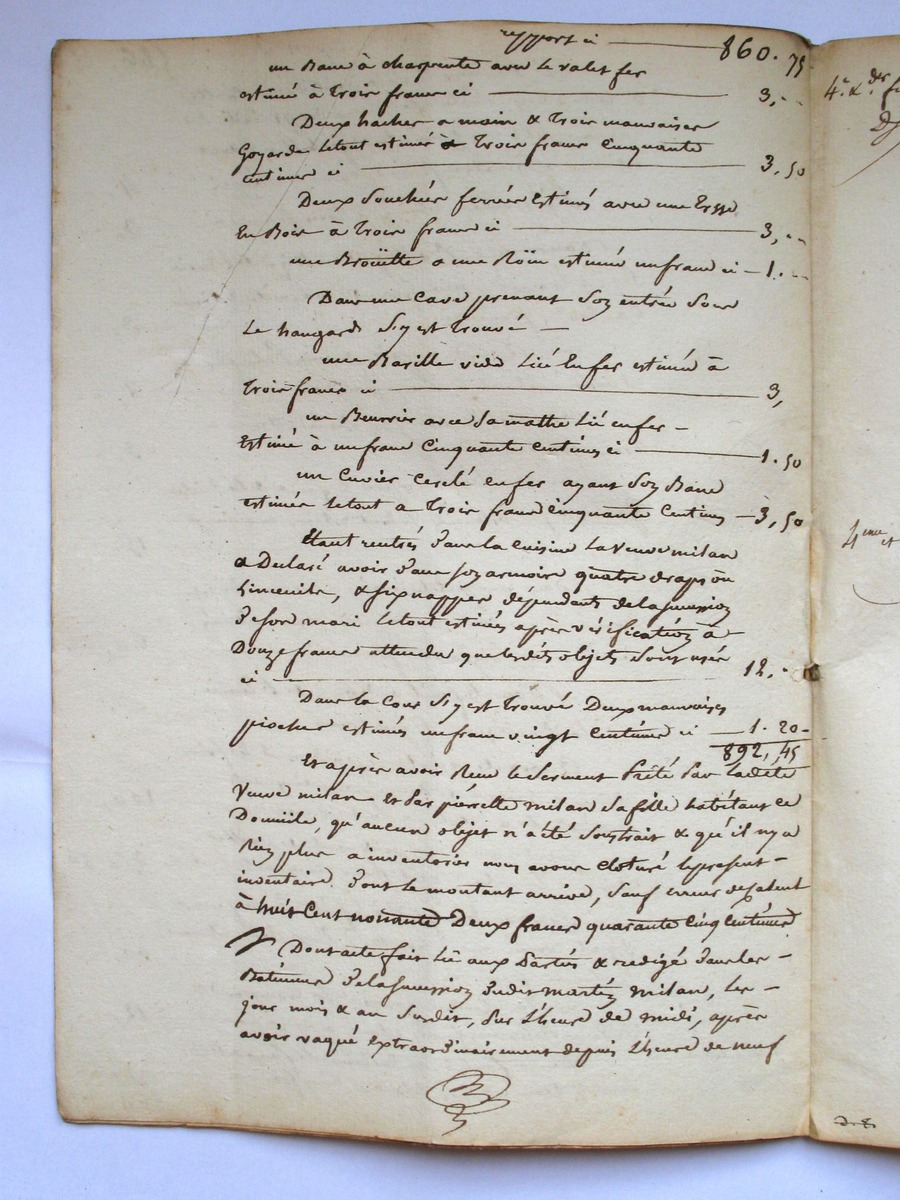 report ci 860. 75
un Banc à charpente avec le valet fer
estimé à trois francs ci 3,--
Deux haches a main & trois mauvaises
Goyardes le tout estimé à trois francs cinquante
centimes ci 3.50
Deux ferrées estimés avec une
En Bois à trois francs ci 3,--
une Broüette a une estimée un franc ci - 1.--
Dans une cave prenant soz entrée sous
Le hangard s'y est trouvé -
une Barille vide Lié En fer estimée à
trois francs ci 3,
un Beurrier avec sa Lié en fer -
Estimé à un franc cinquante centimes ci 1.50
un Cuvier cerclé en fer ayant soz Banc
estimés le tout a trois francs cinquante centimes - 3,50
Etant rentrés dans la cuisine la veuve milan
a Declaré avoir dans soz armoire quatre draps ou
Linceuils, & six nappes dépendants de la succession
de son mari le tout estimés après vérificatioz à
Douze francs attendu que lesdits objets sont usés
ci 12.-
Dans la Cour s'y est trouvé Deux mauvaises
pioches estimés un franc vingt centimes ci 1.20-
892,45
Et après avoir Reçu le serment Prêté Par ladite
Veuve milan et Par pierrette milan sa fille habitant ce
Domicile, qu'aucun objet n'a été soustrait & qu'il n'y a
Riez plus a inventorier nous avons cloturé le present -
inventaire dont le montant arrive, sauf erreur de calcul
à huit Cent nonante Deux francs quarante cinq centimes
Dont acte fait Lû aux Parties & redigé dans les -
Batimens de la successioz dudit martiz milan, les -
jour mois & an susdit, sur l'heure de midi, après
avoir vaqué extraordinairement depuis l'heure de neuf
4.e & der. f
4eme et